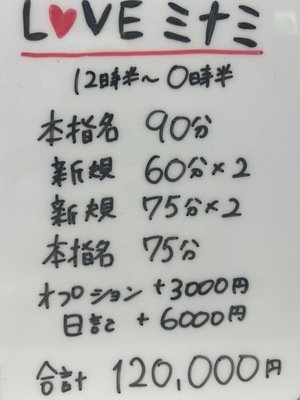 L♥VE ミナミ
12時半〜0時半
本指名 90分
新規 60分×2
新規 75分×2
本指名 75分
オプション +3000円
日記 + 6000円
合計 120,000円